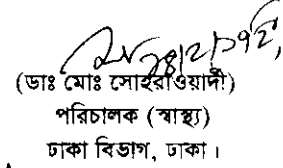 (ডাঃ মোঃ সোহরাওয়ার্দী)
পরিচালক (স্বাস্থ্য)
ঢাকা বিভাগ, ঢাকা।